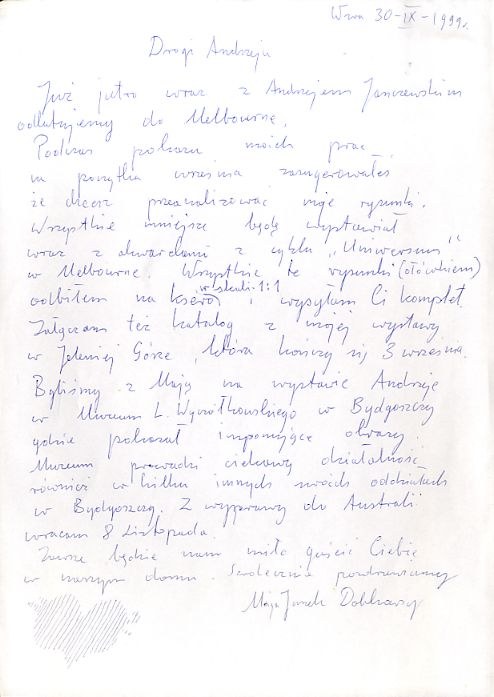 Wwa 30-IX-1999r.
Drogi Andrzeju
Już jutro wraz z Andrzejem Janczewskim
odlatujemy do Melbourne.
Podczas pokazu moich prac
na początku września zasugerowałeś
że chcesz przeanalizować moje rysunki.
Wszystkie mniejsze będę wystawiał
wraz z akwarelami z cyklu „Uniwersum"
w Melbourne. Wszystkie te rysunki (ołówkiem)
odbiłem na ksero w skali 1:1 i wysyłam Ci komplet.
Załączam też katalog z mojej wystawy
w Jeleniej Górze, która kończy się 3 września.
Byliśmy z Mają na wystawie Andrzeja
w Muzeum L. Wyczółkowskiego w Bydgoszczy
gdzie pokazał imponujące obrazy.
Muzeum prowadzi ciekawą działalność
również w kilku innych swoich oddziałach
w Bydgoszczy. Z wyprawy do Australii
wracam 8 listopada.
Zawsze będzie nam miło gościć Ciebie
w naszym domu. Serdecznie pozdrawiamy
Maja Jacek Dobkowscy